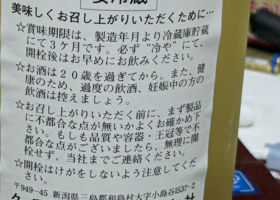 美味しくお召し上がりいただくために…
☆賞味期限は、製造年月より冷蔵庫貯蔵
にて3ケ月です。必ず“冷や”にて、
開栓後はお早めにお飲みください。
☆お酒は20歳を過ぎてから。また、健
康のため、過度の飲酒、妊娠中の方の
飲酒は控えましょう。
☆お召し上がりいただく前に、まず製品
に不都合な点が無いかよくお確かめ下
さい。もしも品質や容器・王冠等で不
都合な点がございましたら、無理に開
栓せず、当社までご連絡ください。
☆開栓はけがをしないよう注意してくだ
さい。
〒949-45 新潟県三島郡和島村大字小島谷1537-2